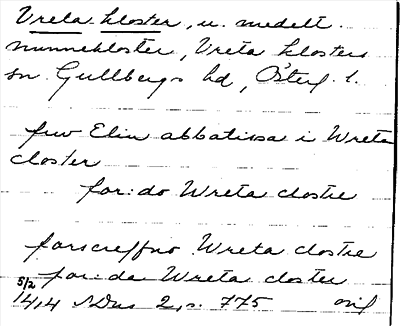 Vreta kloster, u. medelt.
nunnekloster, Vreta klosters
sn Gullbergs hd, Österg. l.
fru Elin abbatissa i Wreta
closter
for:do Wreta clostre
forscreffno Wreta clostre
for:da Wreta closter
5/2
1414 SDns 2, s. 775 orig